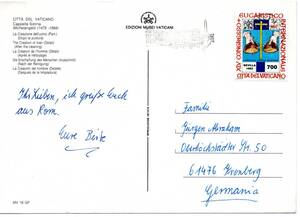 CITTÀ DEL VATICANO
Cappella Sistina
Michelangelo (1475 -1564)
La Creazione dell'uomo (Part.)
(Dopo la pulitura)
The Creation of man (Detail)
(After the cleaning)
La Création de l'homme (Détail)
(Après le nettoyage)
Die Erschaffung der Menschen (Ausschnitt)
(Nach der Reinigung)
La Creación del hombre (Detalle)
(Después de la limpiadura)
EDIZIONI MUSEI VATICANI
XLV CONGRESSO
EUCARISTICO
INTERNAZIONALE
SEVILLA
1993
700
CITTÀ DEL VATICANO
Ihr Lieben, ich grüße Euch
aus Rom.
Eure
Familie
Jürgen Abraham
Str. 50
61476 Kronberg
Germania